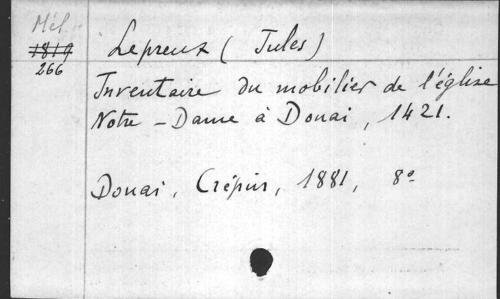 Mél.
1819
266
Lepreux (Jules)
Inventaire du mobilier de l'église
Notre-Dame à Douai, 1421.
Douai, Crépin, 1881, 8º